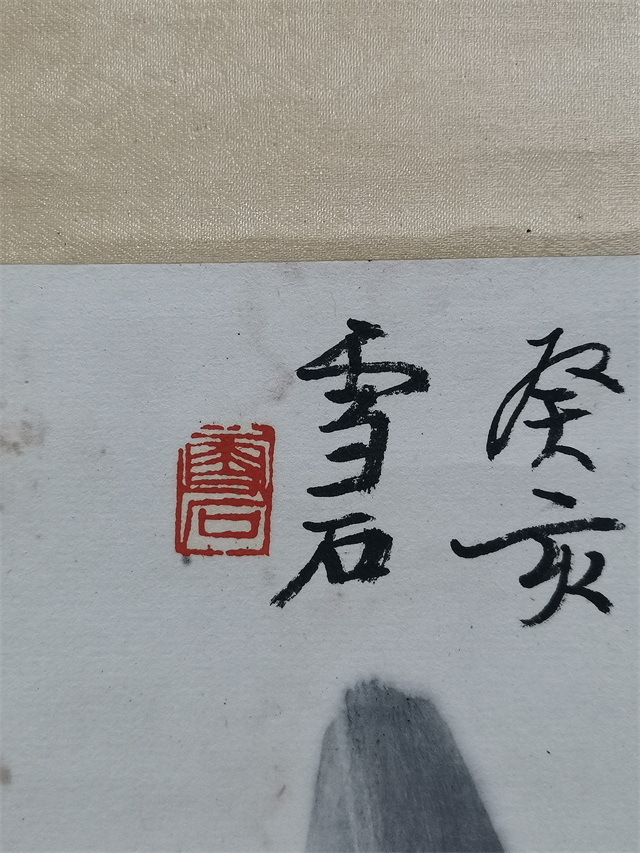 癸亥
雪石
雪石